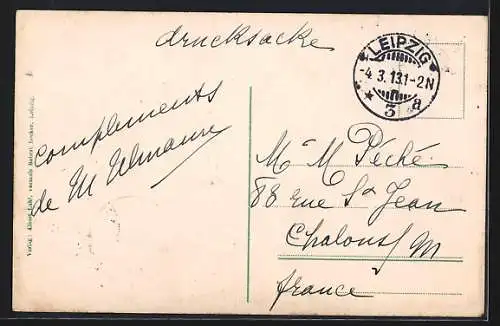 drucksacke
LEIPZIG
-4.3.13.1-2N
3 a
complements
de M Ulmann
M M Péché
88 rue St Jean
Chalons s/ M
france